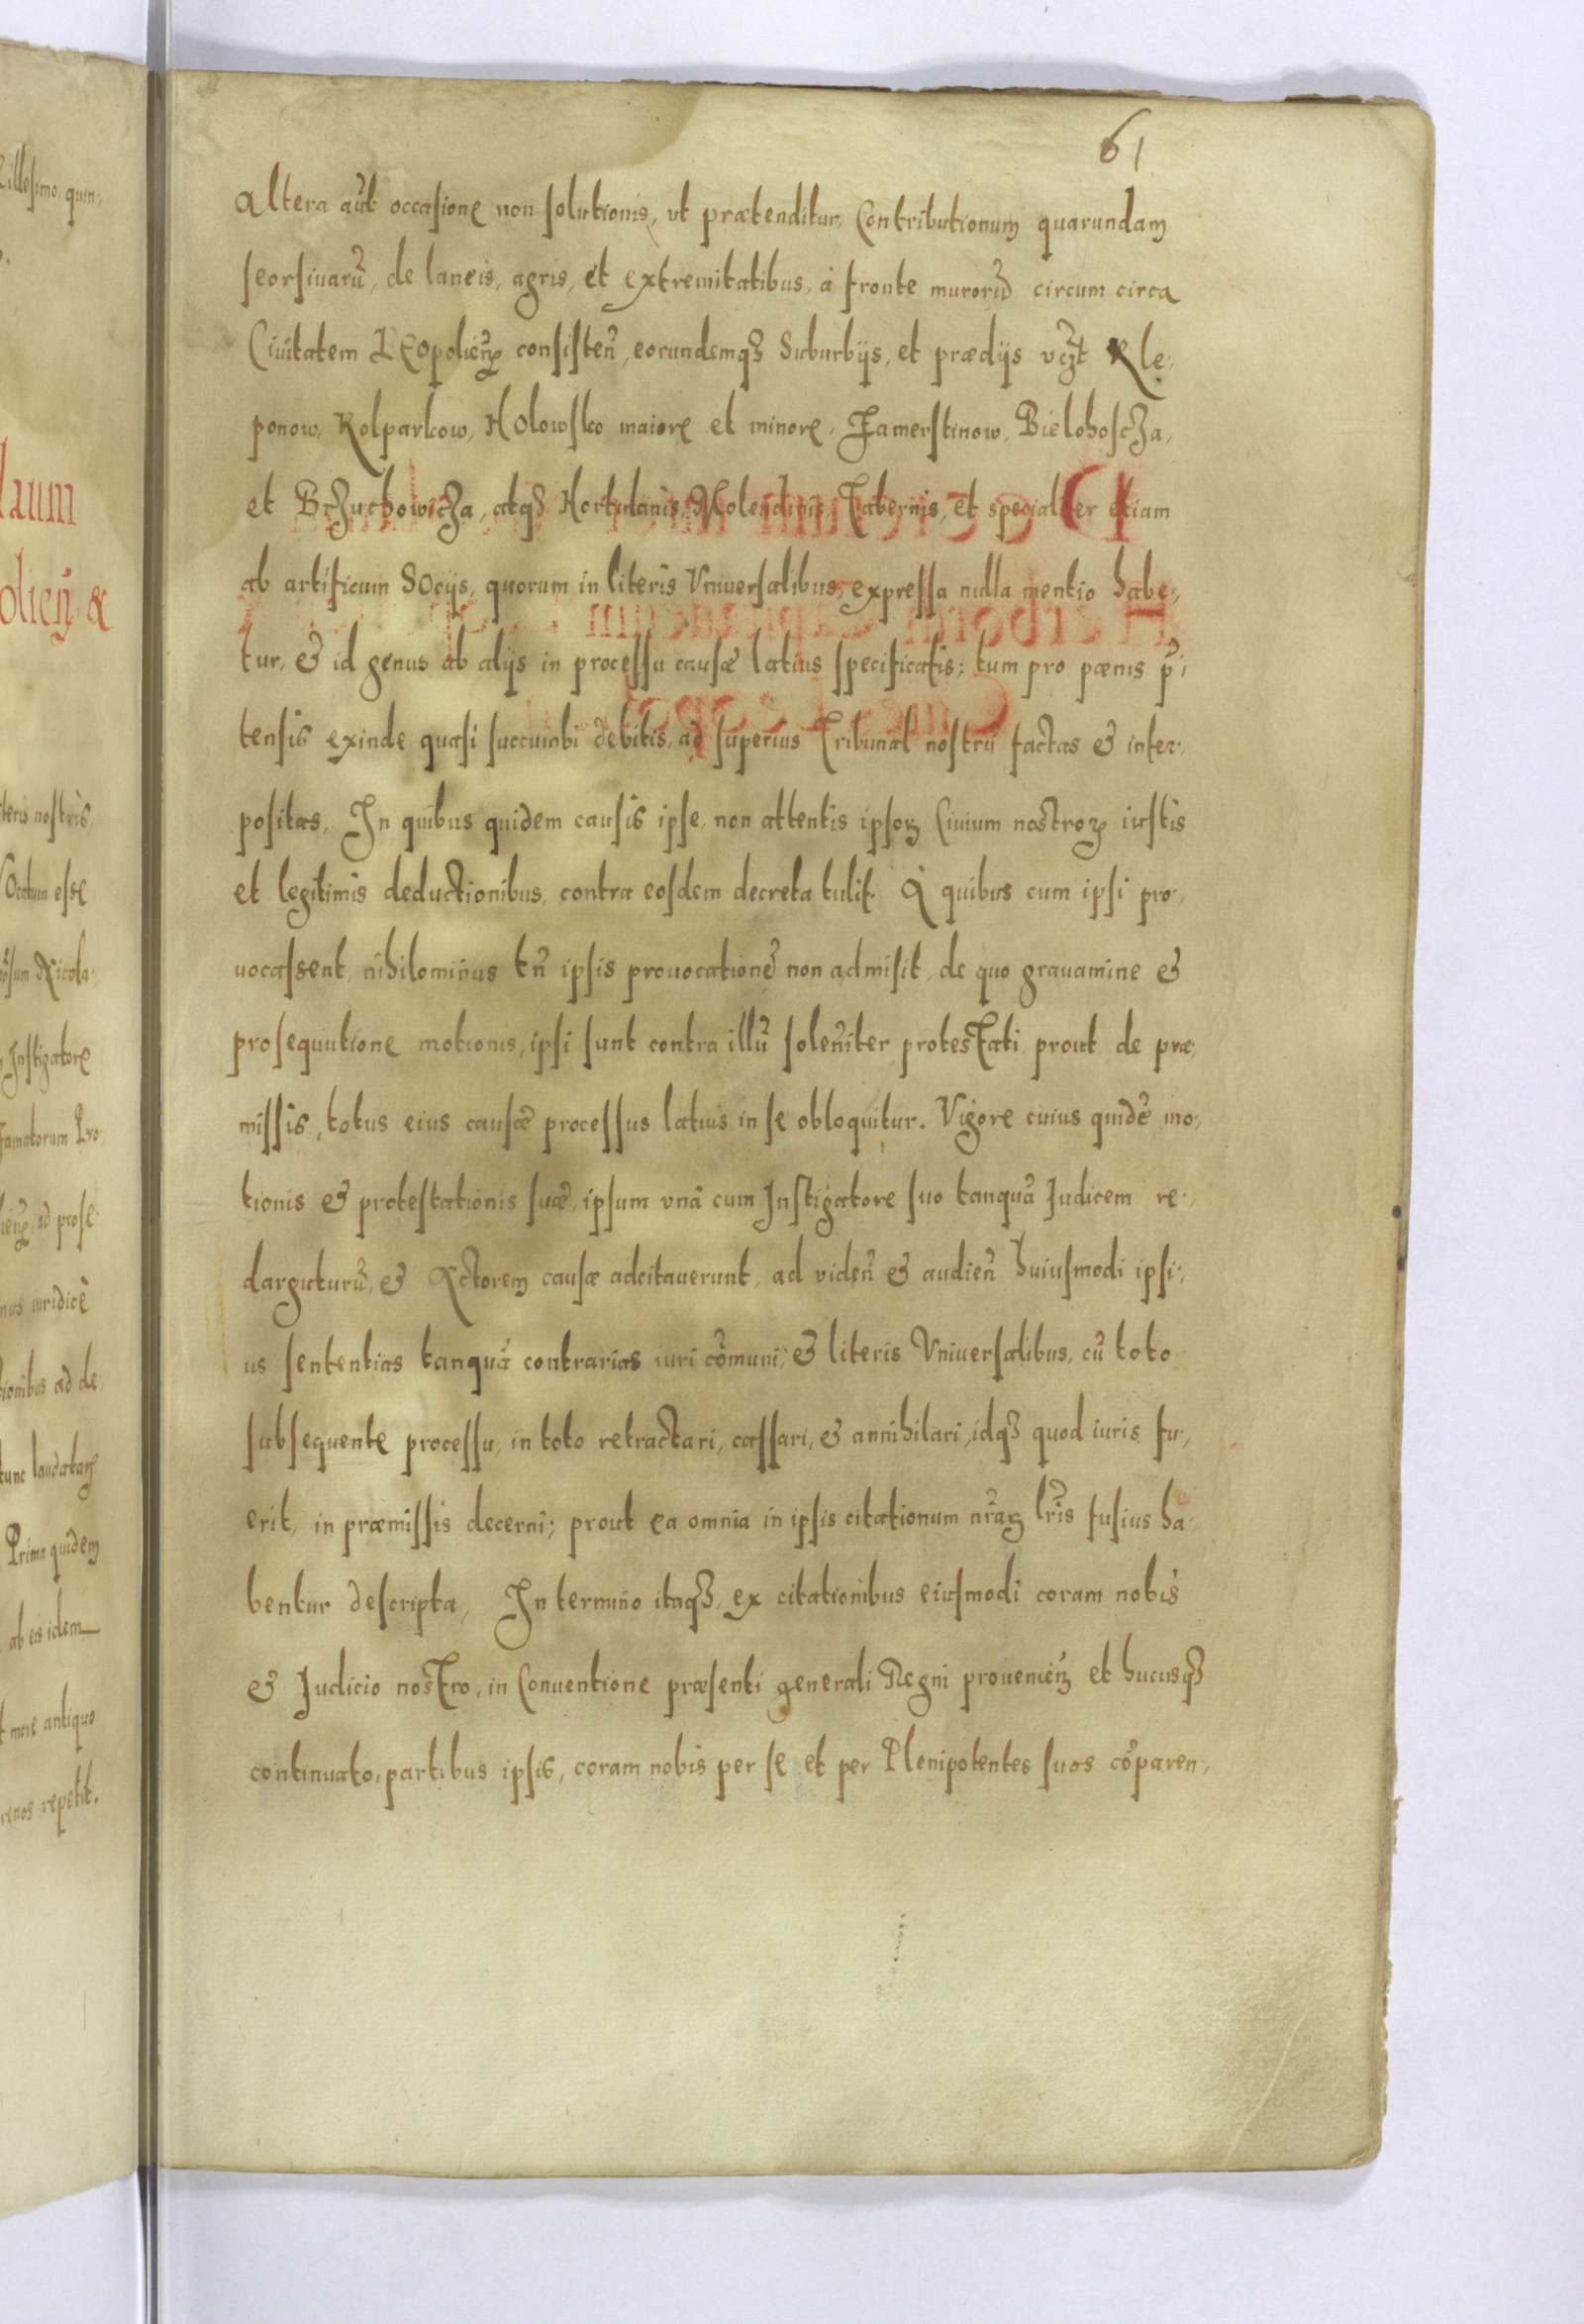 61
Altera aũt occasione non solutionis, ut prætenditur, Contributionum quarundam
seorsiuarũ, de laneis, agris, et extremitatibus, à fronte murorũ circum circa
Ciuitatem Leopolieñ consisteñ, eorundemqꝫ Suburbijs, et prædijs vcꝫt Kle,
ponow, Kolparkow, Holowsko maiore et minore, Zamerstinow, Bielohoscza,
et Brzuchowicza, atqꝫ Hortulanis, Molendinis, Tabernis, et specialiter etiam
ab artificum SOcijs, quorum in literis Vniuersalibus, expressa nulla mentio habe,
tur, & id genus ab alijs in processu causæ latius specificatis; tum pro pœnis p̃,
tensis exinde quasi succumbi debitis, ad superius Tribunal nostrũ factas & inter,
positas, In quibus quidem causis ipse, non attentis ipsoꝝ Ciuium nostroꝝ iustis
et legitimis deductionibus, contra eosdem decreta tulit. A quibus cum ipsi pro,
uocassent, nihilominus tñ ipsis prouocationẽ non admisit, de quo grauamine &
prosequutione motionis, ipsi sunt contra illũ soleñiter protestati prout de præ,
missis, totus eius causæ processus latius in se obloquitur. Vigore cuius quidẽ mo,
tionis & protestationis suæ, ipsum vnâ cum Instigatore suo tanquã Iudicem re,
darguturũ, & Actorem causæ adcitauerunt, ad videñ & audieñ huiusmodi ipsi,
us sententias tanquã contrarias iuri cõmuni, & literis Vniuersalibus, cũ toto
subsequente processu, in toto retractari, cassari, & annihilari, idqꝫ quod iuris fu,
erit, in præmissis decerni; prout ea omnia in ipsis citationum nr̃aꝝ lr̃is fusius ha,
bentur descripta, In termino itaqꝫ, ex citationibus eiusmodi coram nobis
& Iudicio nostro, in Conuentione præsenti generali Regni prouenieñ et hucusqꝫ
continuato, partibus ipsis, coram nobis per se et per Plenipotentes suos cõparen,